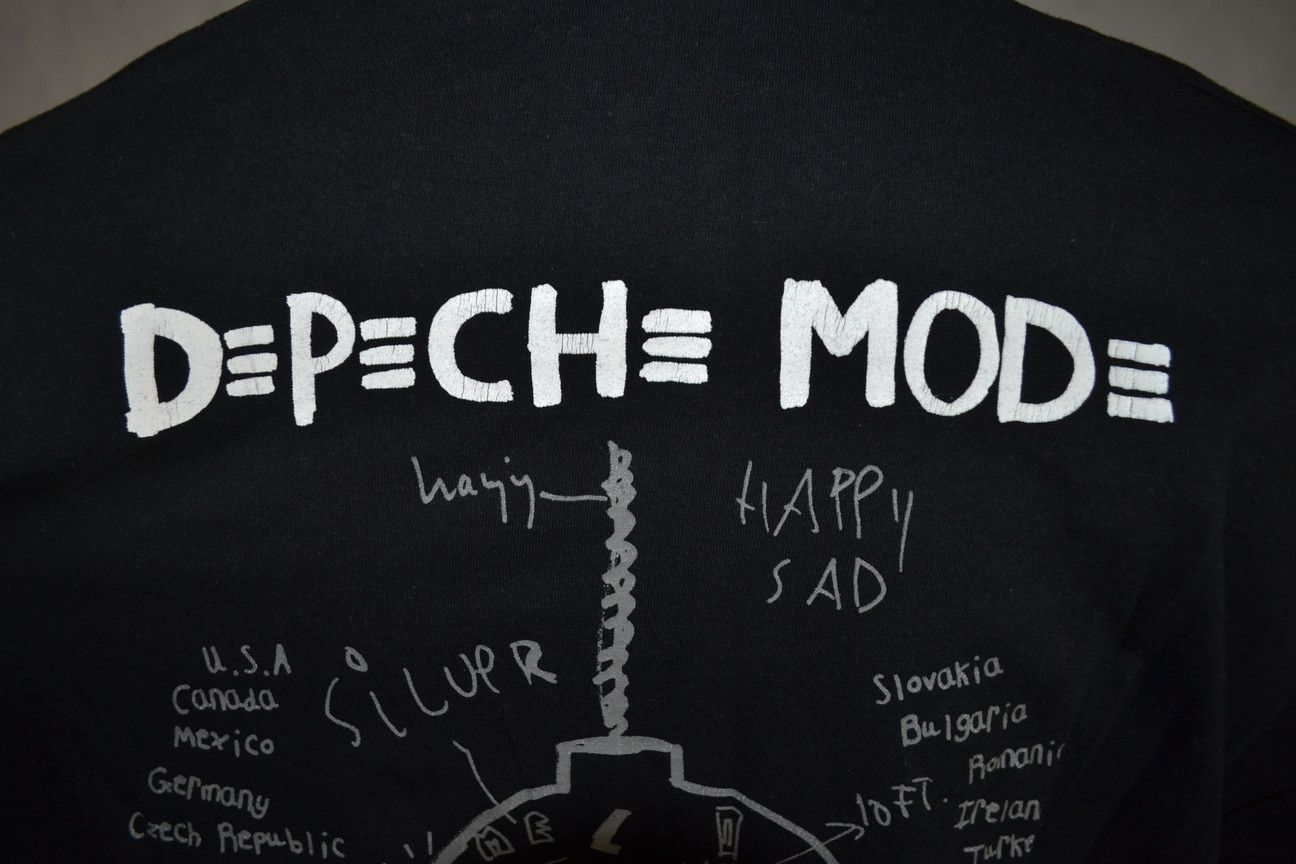 DEPECHE MODE
HAPPY
SAD
SILVER
U.S.A
Canada
Mexico
Germany
Czech Republic
10 FT.
Slovakia
Bulgaria
Romani
Irelan
Turke